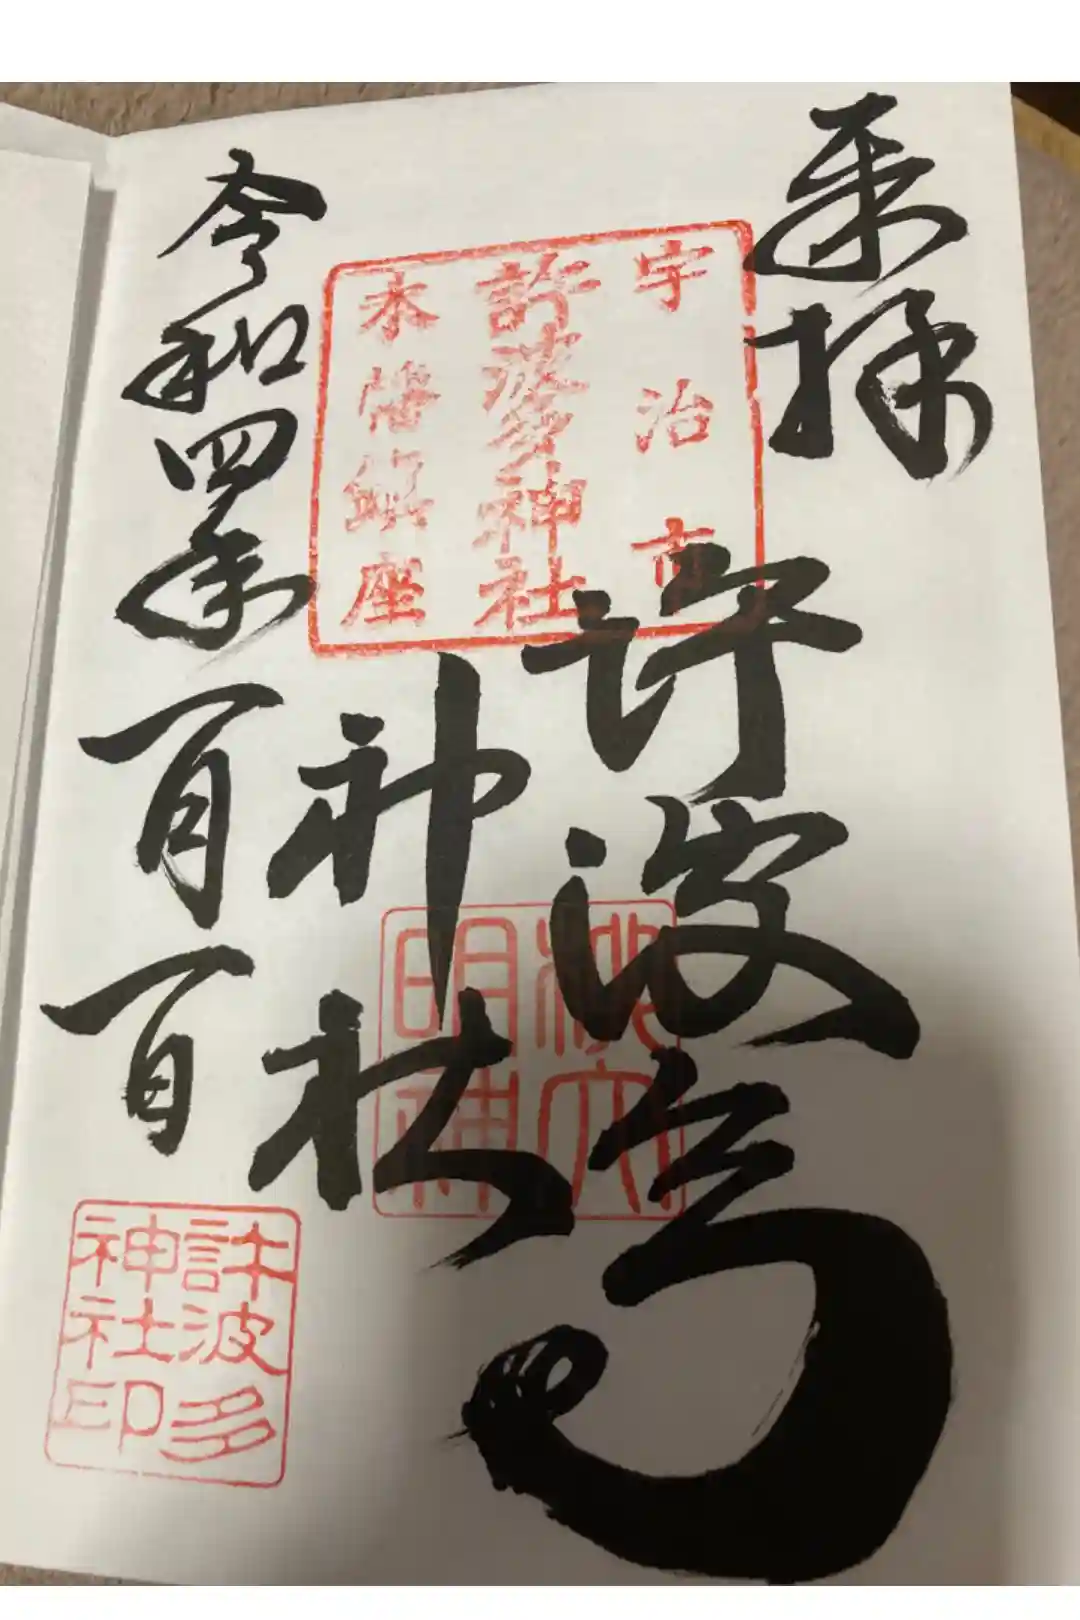 奉拝
宇治市
許波多神社
木幡鎮座
許波多
神社
明神
令和四年
百
許波多
神社印